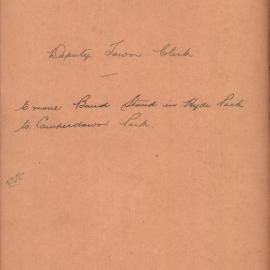 Deputy Town Clerk
Band Stand in Hyde Park
to Camperdown Park.